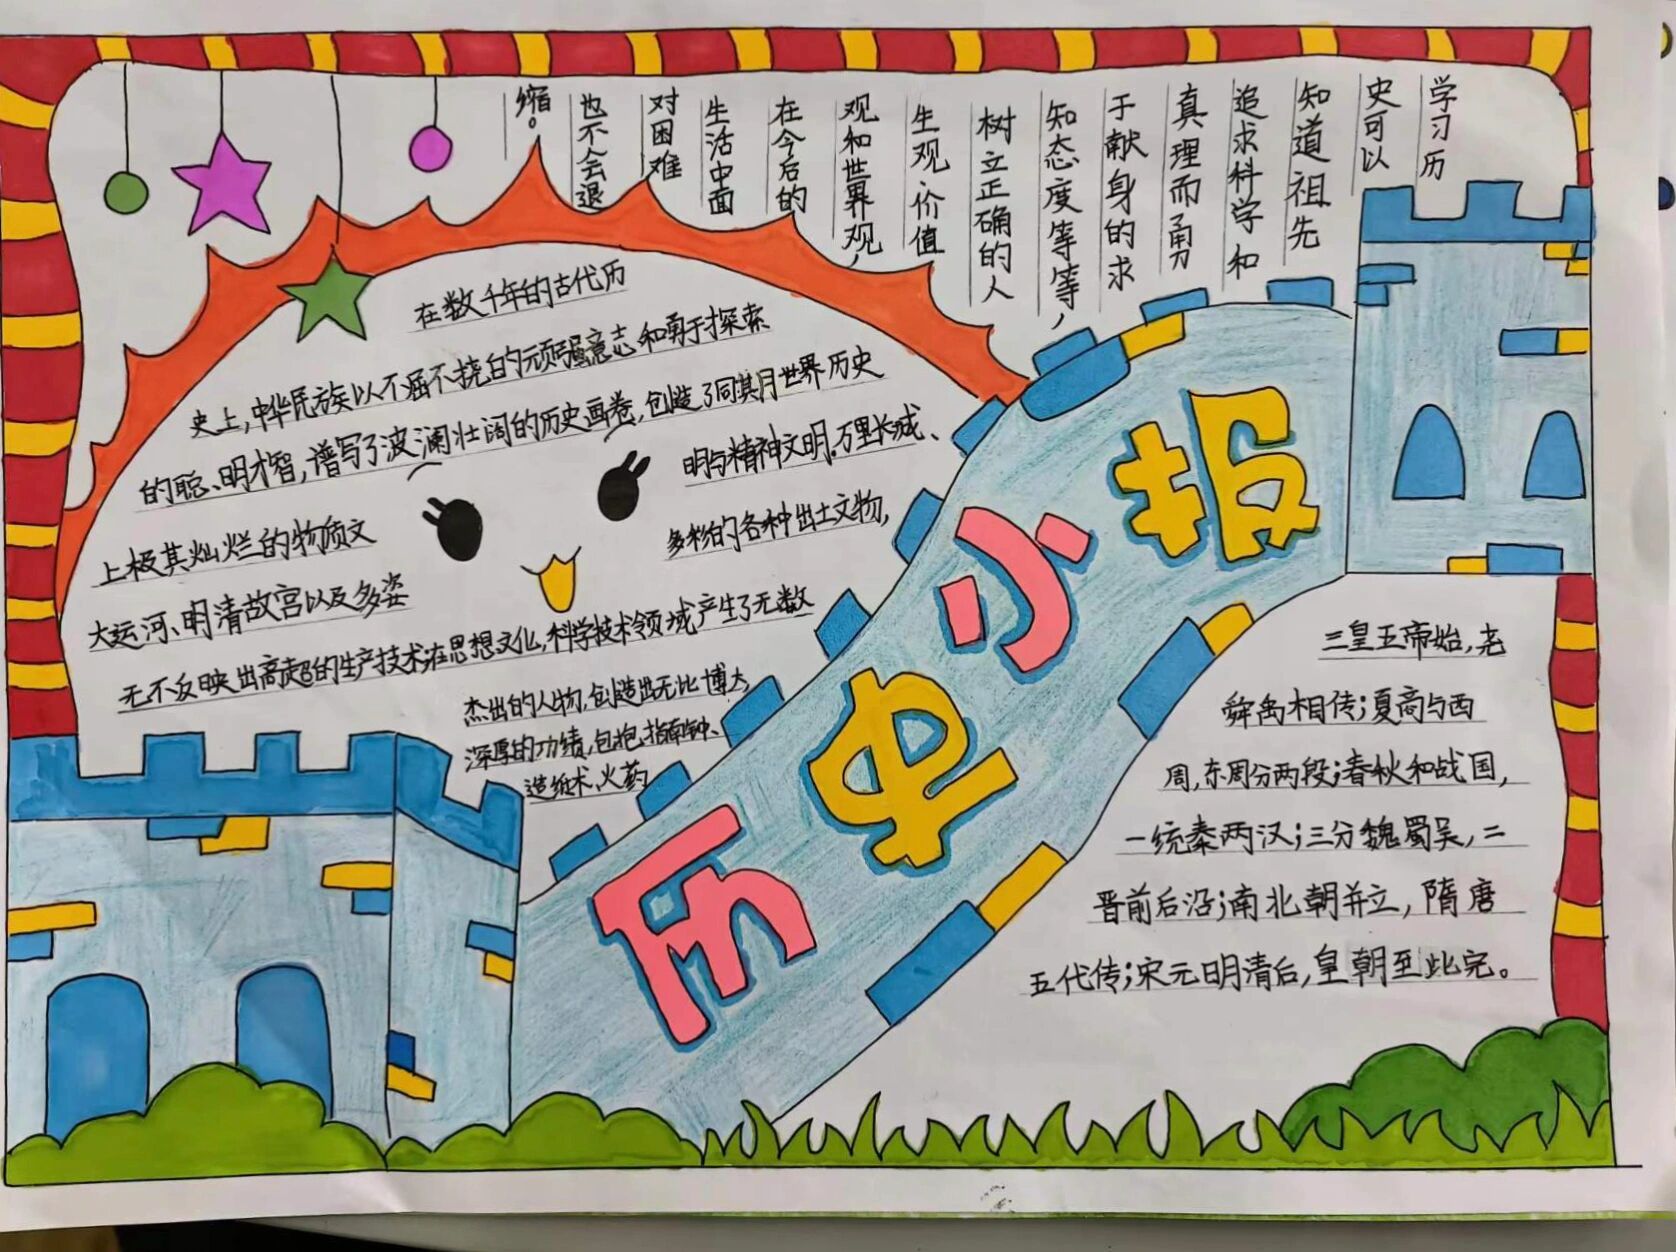 学习历
史可以
知道祖先
追求科学和
真理而勇
于献身的求
知态度等等,
树立正确的人
生观、价值
观和世界观,
在今后的
生活中面
对困难
也不会退
缩。
在数千年的古代历
史上,中华民族以不屈不挠的顽强意志和勇于探索
的聪、明才智,谱写了波澜壮阔的历史画卷,创造了同其月世界历史
上极其灿烂的物质文
明与精神文明。万里长城、
大运河、明清故宫以及多姿
多彩的各种出土文物,
无不反映出高超的生产技术;在思想文化,科学技术领域产生了无数
杰出的人物,创造出无比博大,
深厚的功绩,包抱,指南钟、
造纸术、火药
历史小报
三皇五帝始,尧
舜禹相传;夏商与西
周,东周分两段;春秋和战国,
一统秦两汉;三分魏蜀吴,二
晋前后沿;南北朝并立,隋唐
五代传;宋元明清后,皇朝至此完。